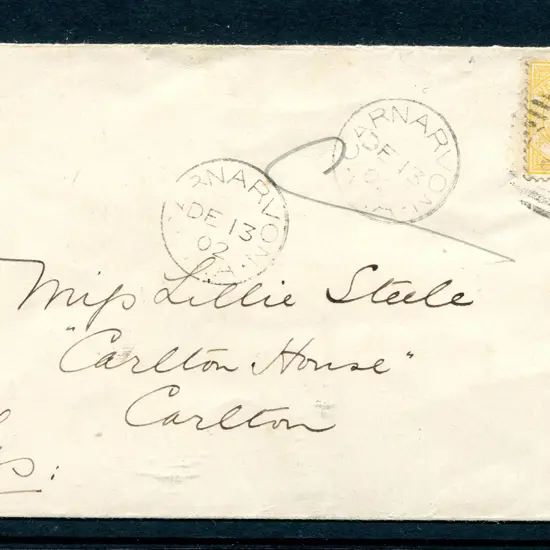 CARNARVON
DE 13
02
W.A
CARNARVON
DE 13
02
Miss Lillie Steele
"Carlton House"
Carlton